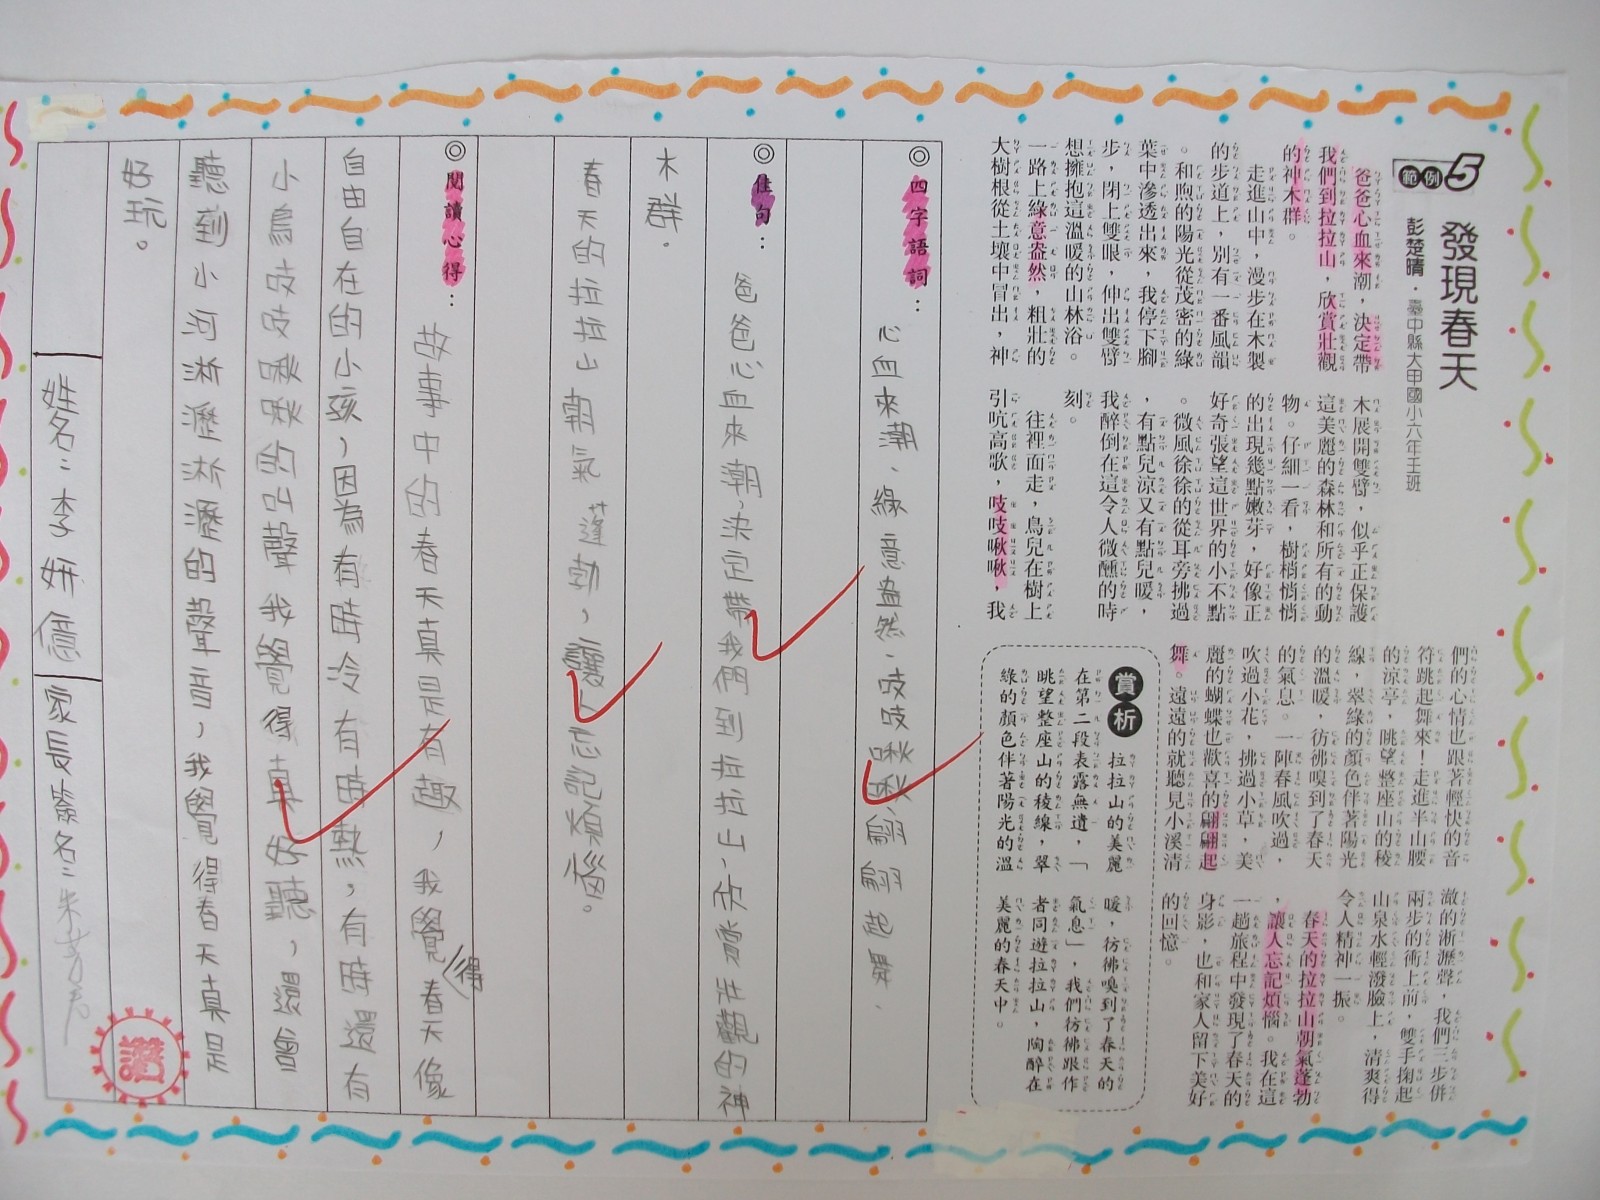 範例5 發現春天
彭楚晴．臺中縣大甲國小六年壬班
爸爸心血來潮，決定帶
我們到拉拉山，欣賞壯觀
的神木群。
走進山中，漫步在木製
的步道上，別有一番風韻
。和煦的陽光從茂密的綠
葉中滲透出來，我停下腳
步，閉上雙眼，伸出雙臂
想擁抱這溫暖的山林浴。
一路上綠意盎然，粗壯的
大樹根從土壤中冒出，神
木展開雙臂，似乎正保護
這美麗的森林和所有的動
物。仔細一看，樹梢悄悄
的出現幾點嫩芽，好像正
好奇張望這世界的小不點
。微風徐徐的從耳旁拂過
，有點兒涼又有點兒暖，
我醉倒在這令人微醺的時
刻。
往裡面走，鳥兒在樹上
引吭高歌，吱吱啾啾，我
們的心情也跟著輕快的音
符跳起舞來！走進半山腰
的涼亭，眺望整座山的稜
線，翠綠的顏色伴著陽光
的溫暖，彷彿嗅到了春天
的氣息。一陣春風吹過，
吹過小花，拂過小草，美
麗的蝴蝶也歡喜的翩翩起
舞。遠遠的就聽見小溪清
澈的淅瀝聲，我們三步併
兩步的衝上前，雙手掬起
山泉水輕潑臉上，清爽得
令人精神一振。
春天的拉拉山朝氣蓬勃
，讓人忘記煩惱。我在這
一趟旅程中發現了春天的
身影，也和家人留下美好
的回憶。
賞析
拉拉山的美麗
在第二段表露無遺，「
眺望整座山的稜線，翠
綠的顏色伴著陽光的溫
暖，彷彿嗅到了春天的
氣息」，我們彷彿跟作
者同遊拉拉山，陶醉在
美麗的春天中。
◎四字語詞：心血來潮、綠意盎然、吱吱啾啾、翩翩起舞．
◎佳句：爸爸心血來潮，決定帶我們到拉拉山、欣賞壯觀的神
木群．
春天的拉拉山朝氣蓬勃，讓人忘記煩惱。
◎閱讀心得：故事中的春天真是有趣，我覺(得)春天像
自由自在的小孩，因為有時冷有時熱，有時還有
小鳥吱吱啾啾的叫聲我覺得真好聽，還會
聽到小河淅瀝淅瀝的聲音，我覺得春天真是
好玩。
姓名：李妍億 家長簽名：
讚